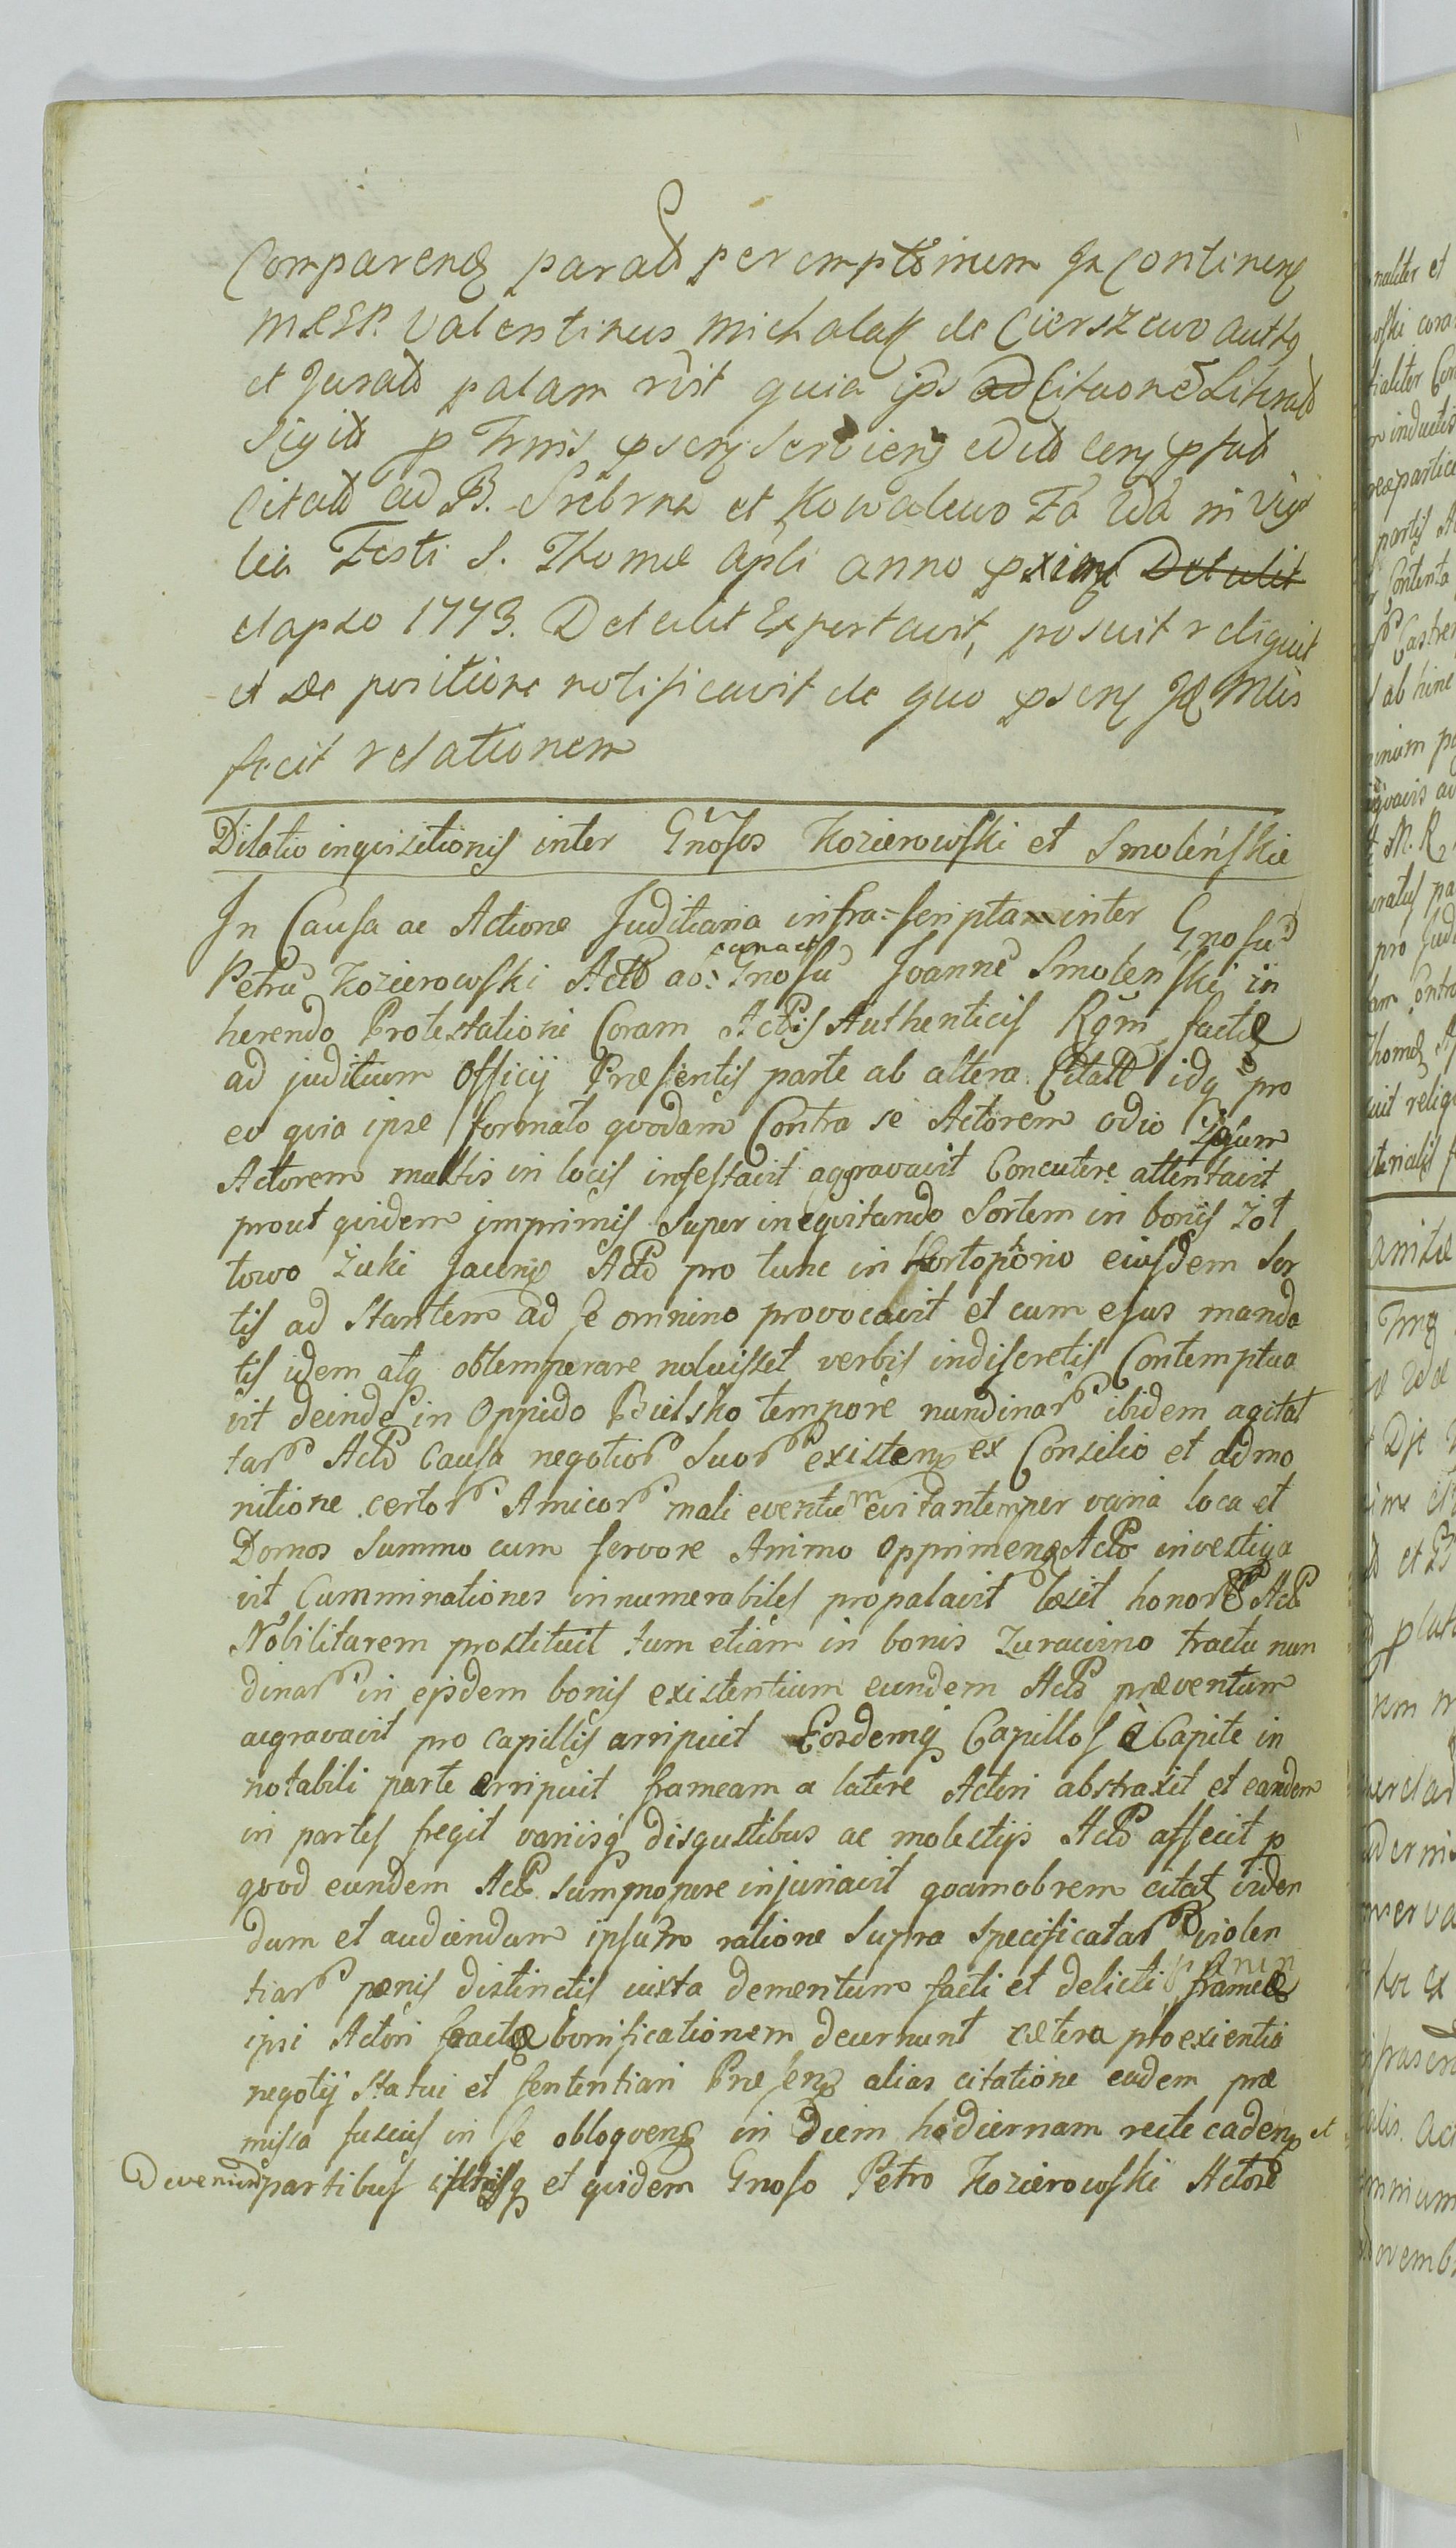 Comparens parats peremptorium In Continens
MRSP. Valentinus Michalak de Cierszewo auths
et Jurats palam rdit quia ips ad Citaone Literats
Sigits p Tmis psens serviens edits
Citats ad B. Srebrna et Kowalewo Fa Uda in Vigi
lia Festi S. Thomæ Apli anno pxime Detulit
elapso 1773. Detulit Exportavit, posuit reliquit
et de positione notificavit de quo psens Jd Mlis
fecit relationem
Dilatio inquisitionis inter Gnosos Kozierowski et Smoleńskie
In Causa ac Actione Juditiaria infra-scripta inter Gnosu
Petru Kozierowski Acto ab: Gnosu Joanne Smolenski in
herendo Protestationi Coram Actis Authenticis Rgni factæ
ad juditium Officij Præsentis parte ab altera Citatt idq pro
eo quia ipse formato quodam Contra se Actorem odio Ipsum
Actorem multis in locis infestavit aggravavit Concutere attentavit
prout quidem imprimis super inequitando Sortem in bonis Zot
towo Zuki Jacens Acto pro tunc in Hortoprio eiusdem Sor
tis ad Stantem ad se omnino provocavit et cum ejus manda
tis idem atq obtemperare noluisset verbis indiscretis Contemptua
vit deinde in Oppido Bielsko tempore nundinar ibidem agitat
tar Acto Causa negotior Suor existens ex Consilio et admo
nitione certor Amicor mali eventum evitantem per varia loca et
Domos Summo cum fervore Animo Opprimens Acto investiga
vit Cumminationes innumerabiles propalavit læsit honore Acto
Nobilitarem prostituit tum etiam in bonis Zurawino tractu nun
dinar in ejsdem bonis existentium eundem Acto præventum
aegravavit pro capillis arripuit Eosdemq Capillos à Capite in
notabili parte erripuit frameam a latere Actori abstraxit et eandem
in partes fregit variisq disgustibus ac molestijs Acto affecit p
quod eundem Acto summopere injuriavit quamobrem citat viden
dum et audiendum ipsum ratione Supra Specificatar violen
tiar pænis distinctis iuxta dementum facti et delicti frameæ
ipsi Actori fractæ bonificationem decernunt cætera pro exientia
negotij Statui et sententiari Præsens alias citatione eadem præ
missa fusius in se obloquens in Diem hodiernam recte cadens et
Deveniend partibus istisq et quidem Gnoso Petro Kozierowski Actore